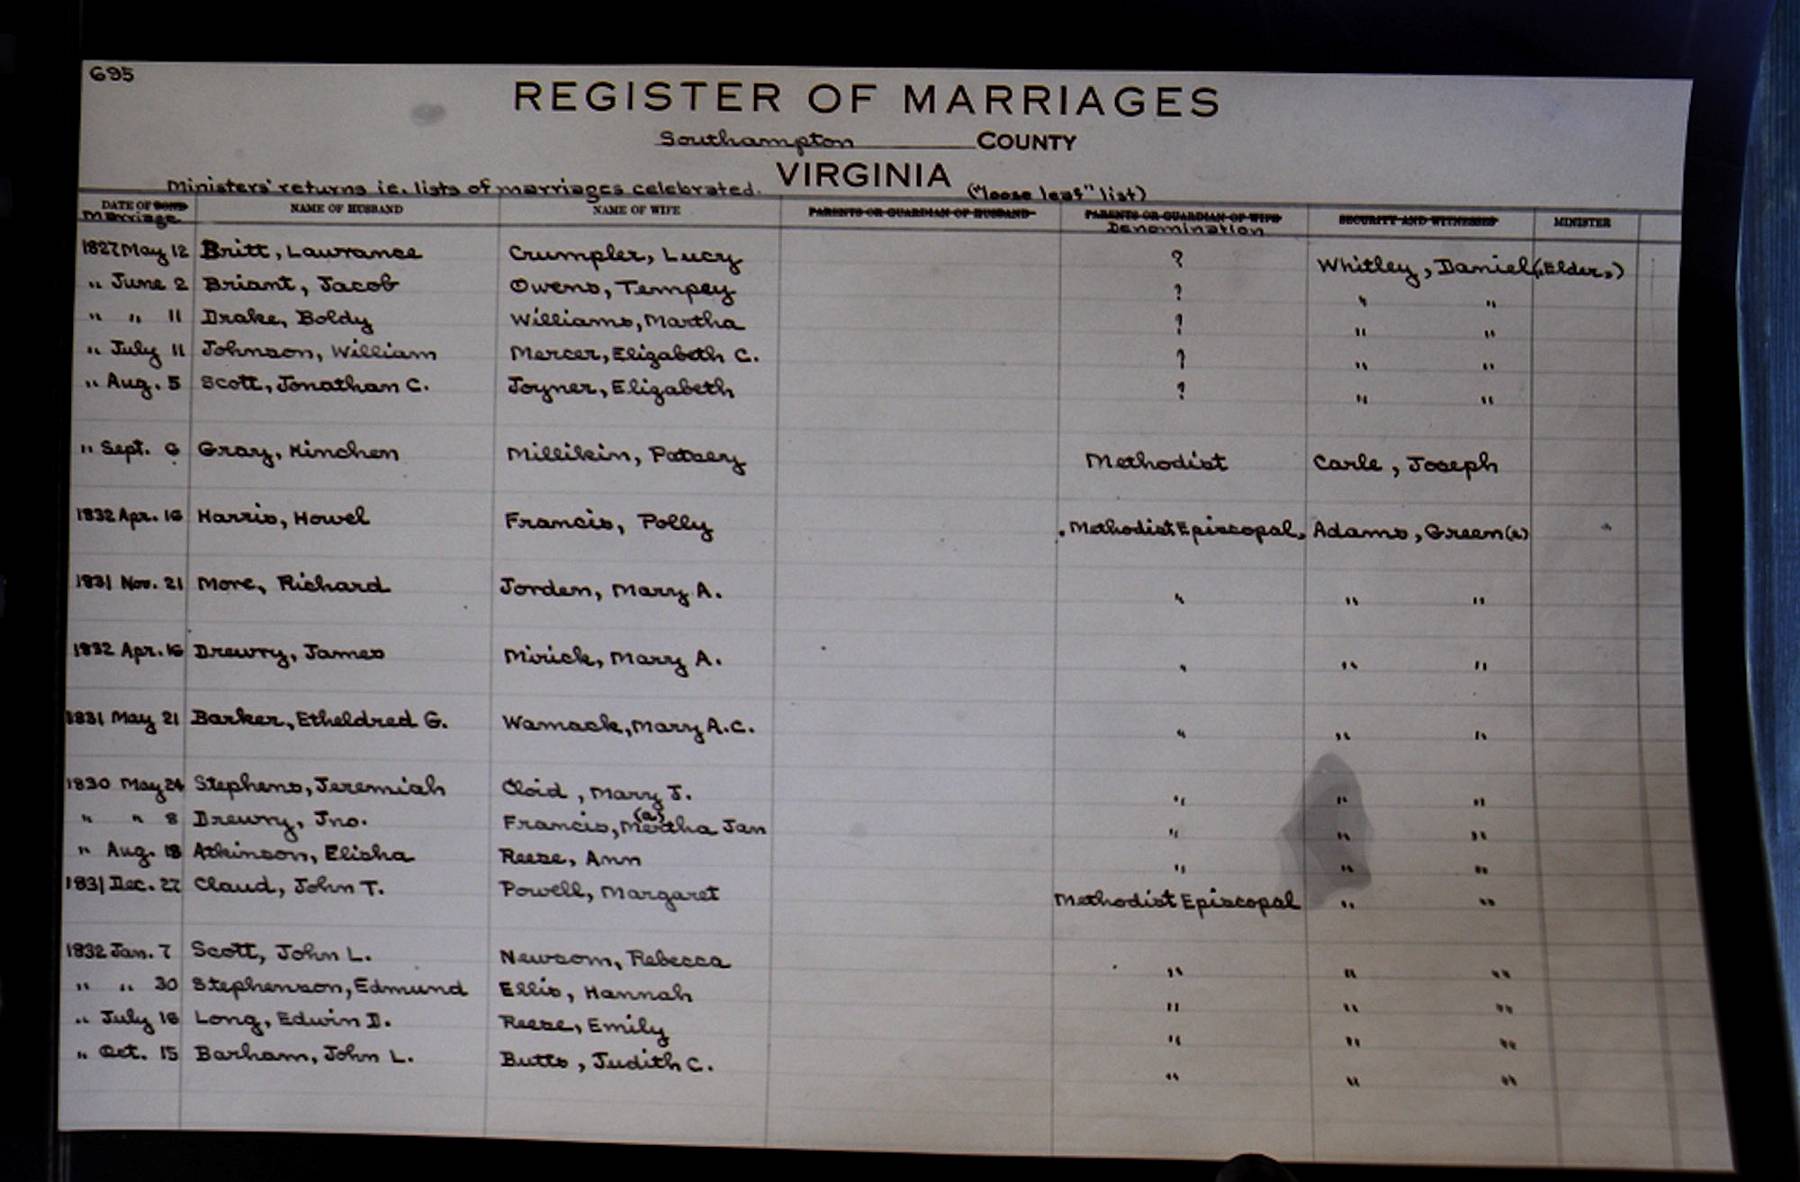 695
REGISTER OF MARRIAGES
Southampton COUNTY
VIRGINIA
Ministers' returns ie. lists of marriages celebrated. ("loose leaf" list)
DATE OF BOND NAME OF HUSBAND NAME OF WIFE PARENTS OR GUARDIAN OF HUSBAND PARENTS OR GUARDIAN OF WIFE SECURITY AND WITNESSES MINISTER
Marriage Denomination
1827 May 12 Britt, Lawrance Crumpler, Lucy ? Whitley, Daniel („Elder„)
" June 2 Briant, Jacob Owens, Tempey ? " "
" " 11 Drake, Boldy Williams, Martha ? " "
" July 11 Johnson, William Mercer, Elizabeth C. ? " "
" Aug. 5 Scott, Jonathan C. Joyner, Elizabeth ? " "
" Sept. 6 Gray, Kinchen Millikin, Patsey Methodist Carle, Joseph
1832 Apr. 16 Harris, Howel Francis, Polly Methodist Episcopal, Adams, Green(e)
1831 Nov. 21 More, Richard Jorden, Mary A. " " "
1832 Apr. 16 Drewry, James Mirick, Mary A. " " "
1831 May 21 Barker, Etheldred G. Wamack, Mary A.C. " " "
1830 May 24 Stephens, Jeremiah Cloid, Mary J. " " "
" " 8 Drewry, Jno. Francis, Mertha Jan " " "
(a)
" Aug. 18 Atkinson, Elisha Reese, Ann " " "
1831 Dec. 22 Claud, John T. Powell, Margaret Methodist Episcopal " "
1832 Jan. 7 Scott, John L. Newsom, Rebecca " " "
" " 30 Stephenson, Edmund Ellis, Hannah " " "
" July 16 Long, Edwin D. Reese, Emily " " "
" Oct. 15 Barham, John L. Butts, Judith C. " " "